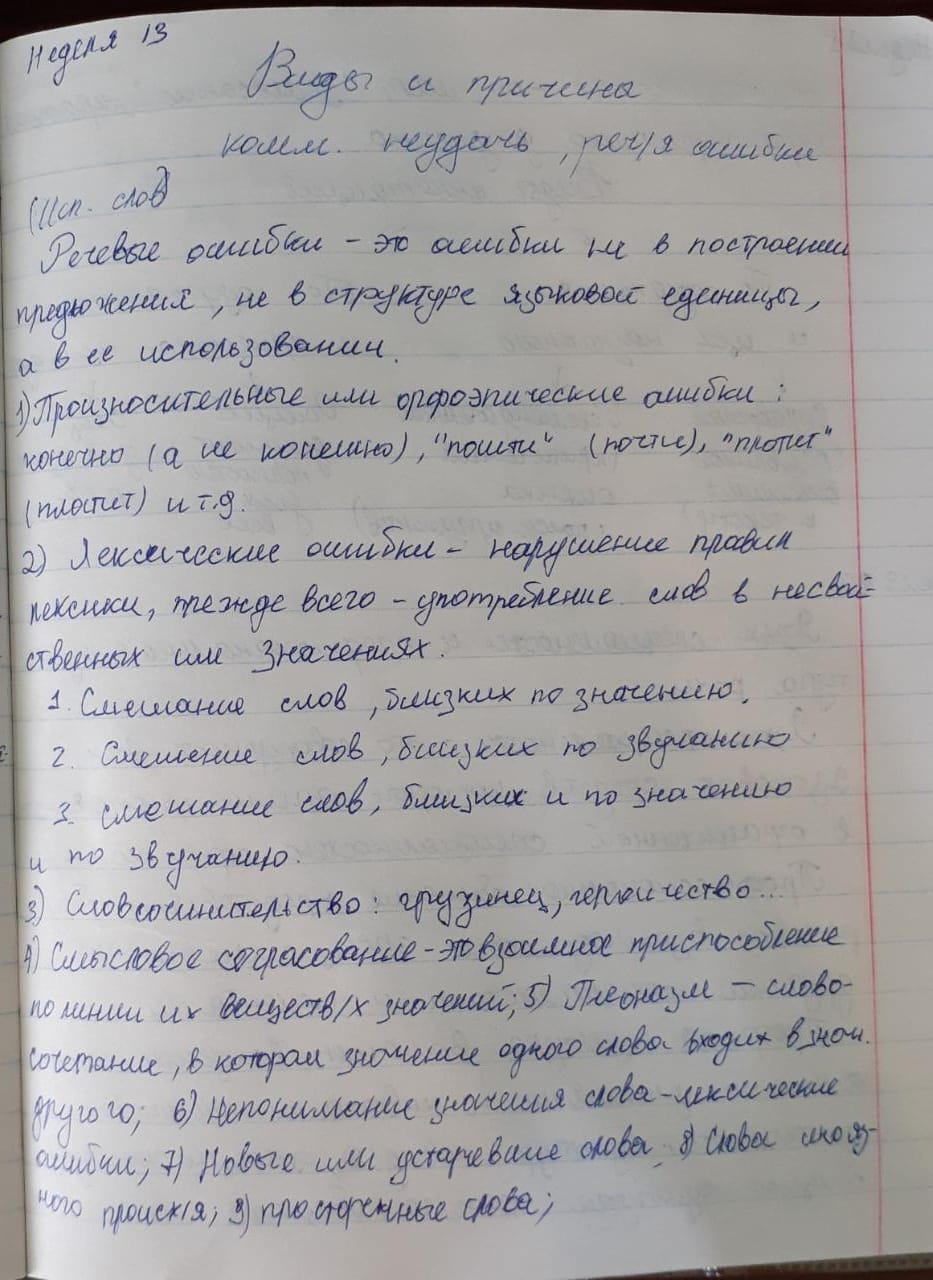 Неделя 13
Виды и причины
комм. неудачь, реч/я ошибки
(Исп. слов)
Речевые ошибки - это ошибки не в построении
предложения, не в структуре языковой единицы,
а в ее использовании.
1) Произносительные или орфоэпические ошибки :
конечно (а не конешно), "пошти" (почти), "плотит"
(платит) и т.д.
2) Лексические ошибки - нарушение правил
лексики, прежде всего - употребление слов в несвой-
ственных им значениях.
1. Смешание слов, близких по значению.
2. Смешение слов, близких по звучанию
3. смешание слов, близких и по значению
и по звучанию.
3) Словсочинительство: грузинец, героичество...
4) Смысловое согласование - это взаимное приспособление
по линии их веществ/х значений; 5) Плеоназм - слово-
сочетание, в котором значение одного слова входит в знач.
другого; 6) Непонимание значения слова - лексические
ошибки; 7) Новые или устаревшие слова 8) Слова иняз-
ного происх/я; 9) просторечные слова;